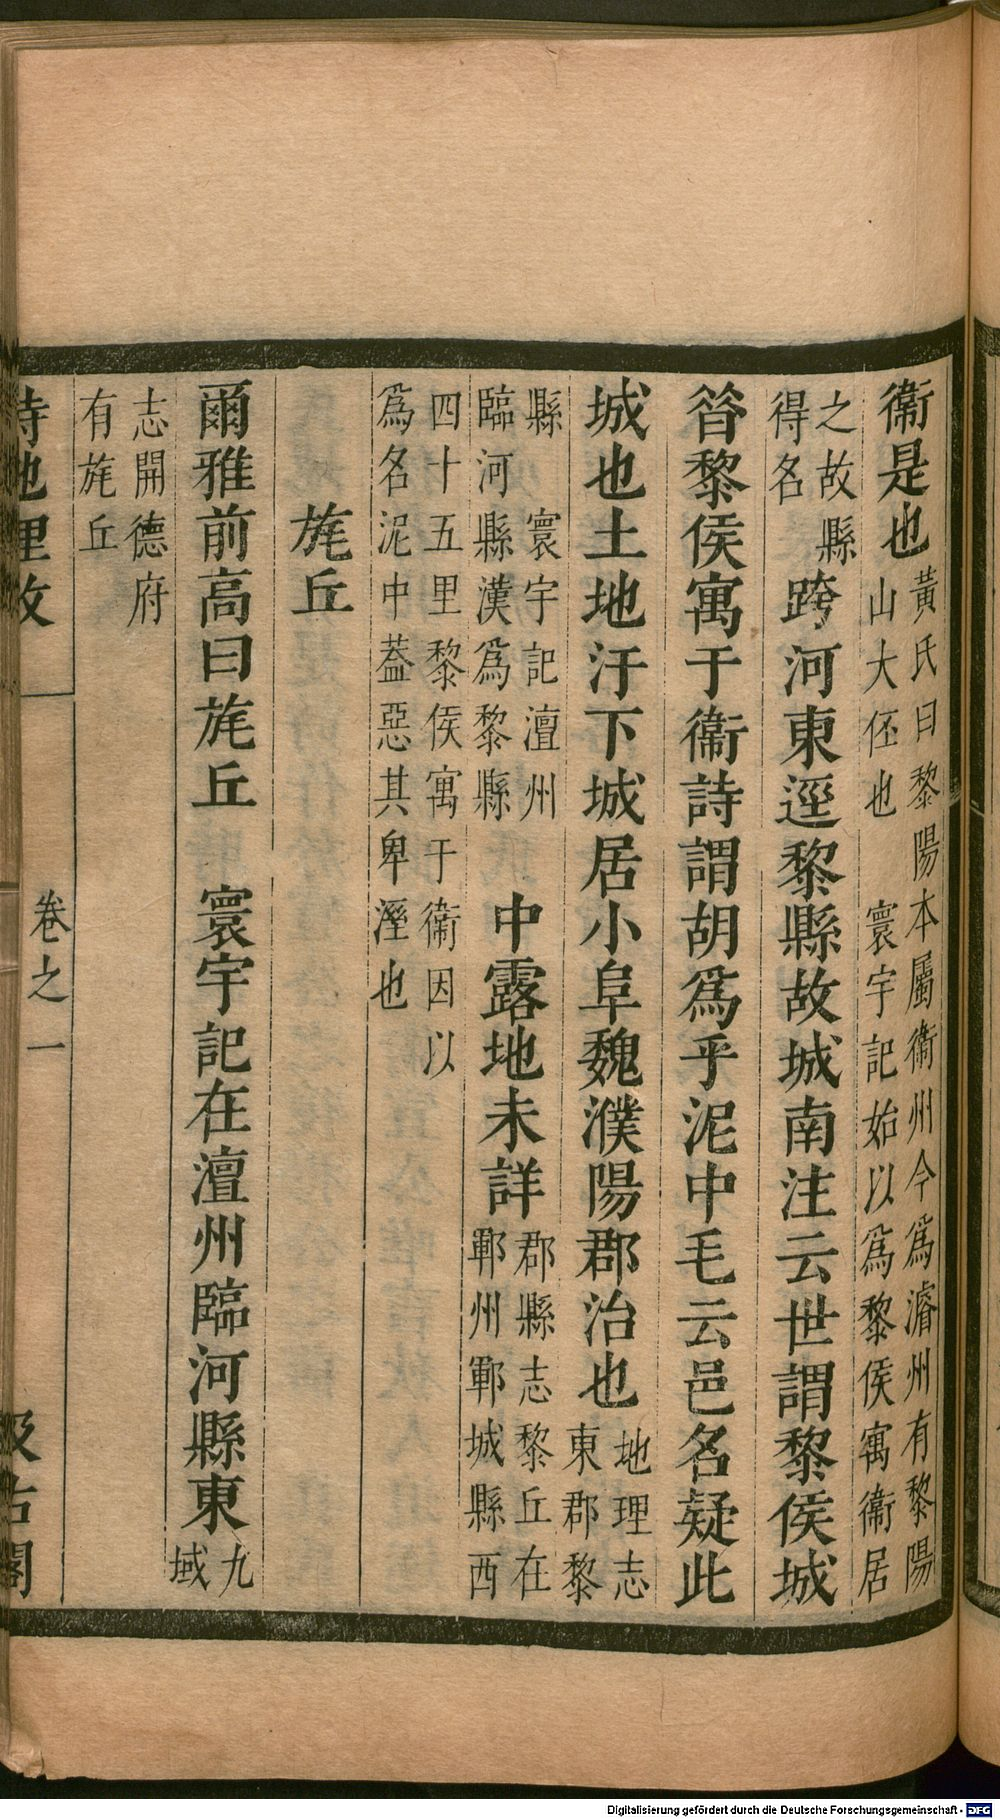 衞是也黃氏曰黎陽本屬衞州今爲濬州有黎陽山大伾也　寰宇記始以爲黎侯寓衞居
之故縣得名　跨河東逕黎縣故城南注云世謂黎侯城
昝黎侯寓于衞詩謂胡爲乎泥中毛云邑名疑此
城也土地汙下城居小阜魏濮陽郡治也地理志東郡黎
縣　寰宇記澶州臨河縣漢爲黎縣　中露地未詳郡縣志黎丘在鄆州鄆城縣西
四十五里黎侯寓于衞因以爲名泥中蓋惡其卑溼也
旄丘
爾雅前高曰旄丘　寰宇記在澶州臨河縣東九域
志開德府有旄丘
詩地里攷
卷之一
汲古閣
Digitalisierung gefördert durch die Deutsche Forschungsgemeinschaft - DFG